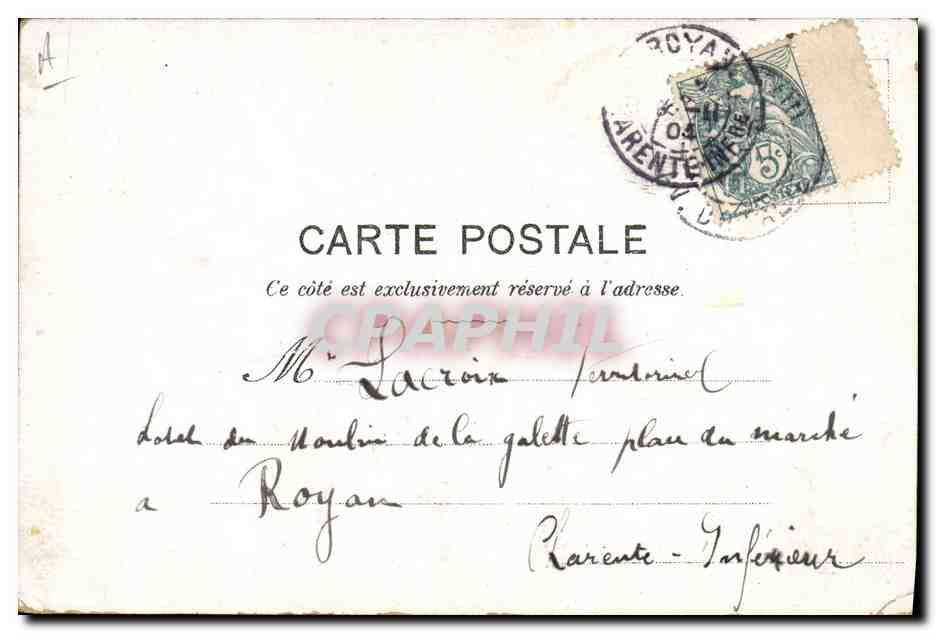 A
ROYAN
04
ARENTE-INFRE
5c
POSTES
CARTE POSTALE
Ce côté est exclusivement réservé à l'adresse.
CPAPHIL
Mr Lacroix Territorial
hotel du Moulin de la galette place du marché
a Royan
Charente-Inférieur